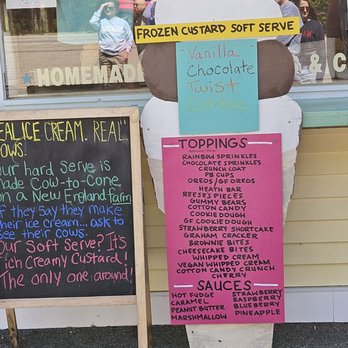 FROZEN CUSTARD SOFT SERVE
Vanilla
Chocolate
Twist
HOMEMADE
& C
REAL ICE CREAM. REAL
COWS.
Our hard Serve is
Made Cow-to-Cone
on a New England farm
If they Say they make
their ice cream... ask to
see their cows.
Our Soft Serve? It's
Rich Creamy Custard!
The only one around!
TOPPINGS
RAINBOW SPRINKLES
CHOCOLATE SPRINKLES
CRUNCH COAT
PB CUPS
OREOS/GF OREOS
HEATH BAR
REESES PIECES
GUMMY BEARS
COTTON CANDY
COOKIE DOUGH
GF COOKIE DOUGH
STRAWBERRY SHORTCAKE
GRAHAM CRACKER
BROWNIE BITES
CHEESECAKE BITES
WHIPPED CREAM
VEGAN WHIPPED CREAM
COTTON CANDY CRUNCH
CHERRY
SAUCES
HOT FUDGE STRAWBERRY
CARAMEL RASPBERRY
PEANUT BUTTER BLUEBERRY
MARSHMALLOW PINEAPPLE